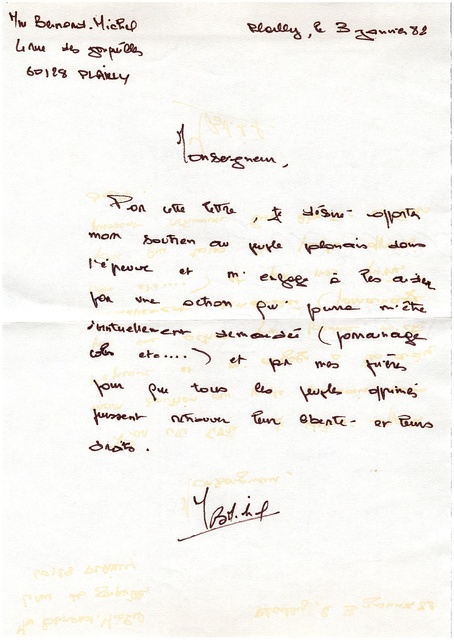 Mr Bernard-Michel
4 rue des
60128 PLAILLY
Plailly, le 3 janvier 82
Monseigneur,
Par cette lettre, je désire apporter
mon soutien au peuple polonais dans
l'épreuve et m'engage à les aider
par une action qui pourra m'être
éventuellement demandée (parrainage
colis etc....) et par mes prières
pour que tous les peuples opprimés
puissent retrouver leur liberté et leurs
droits.